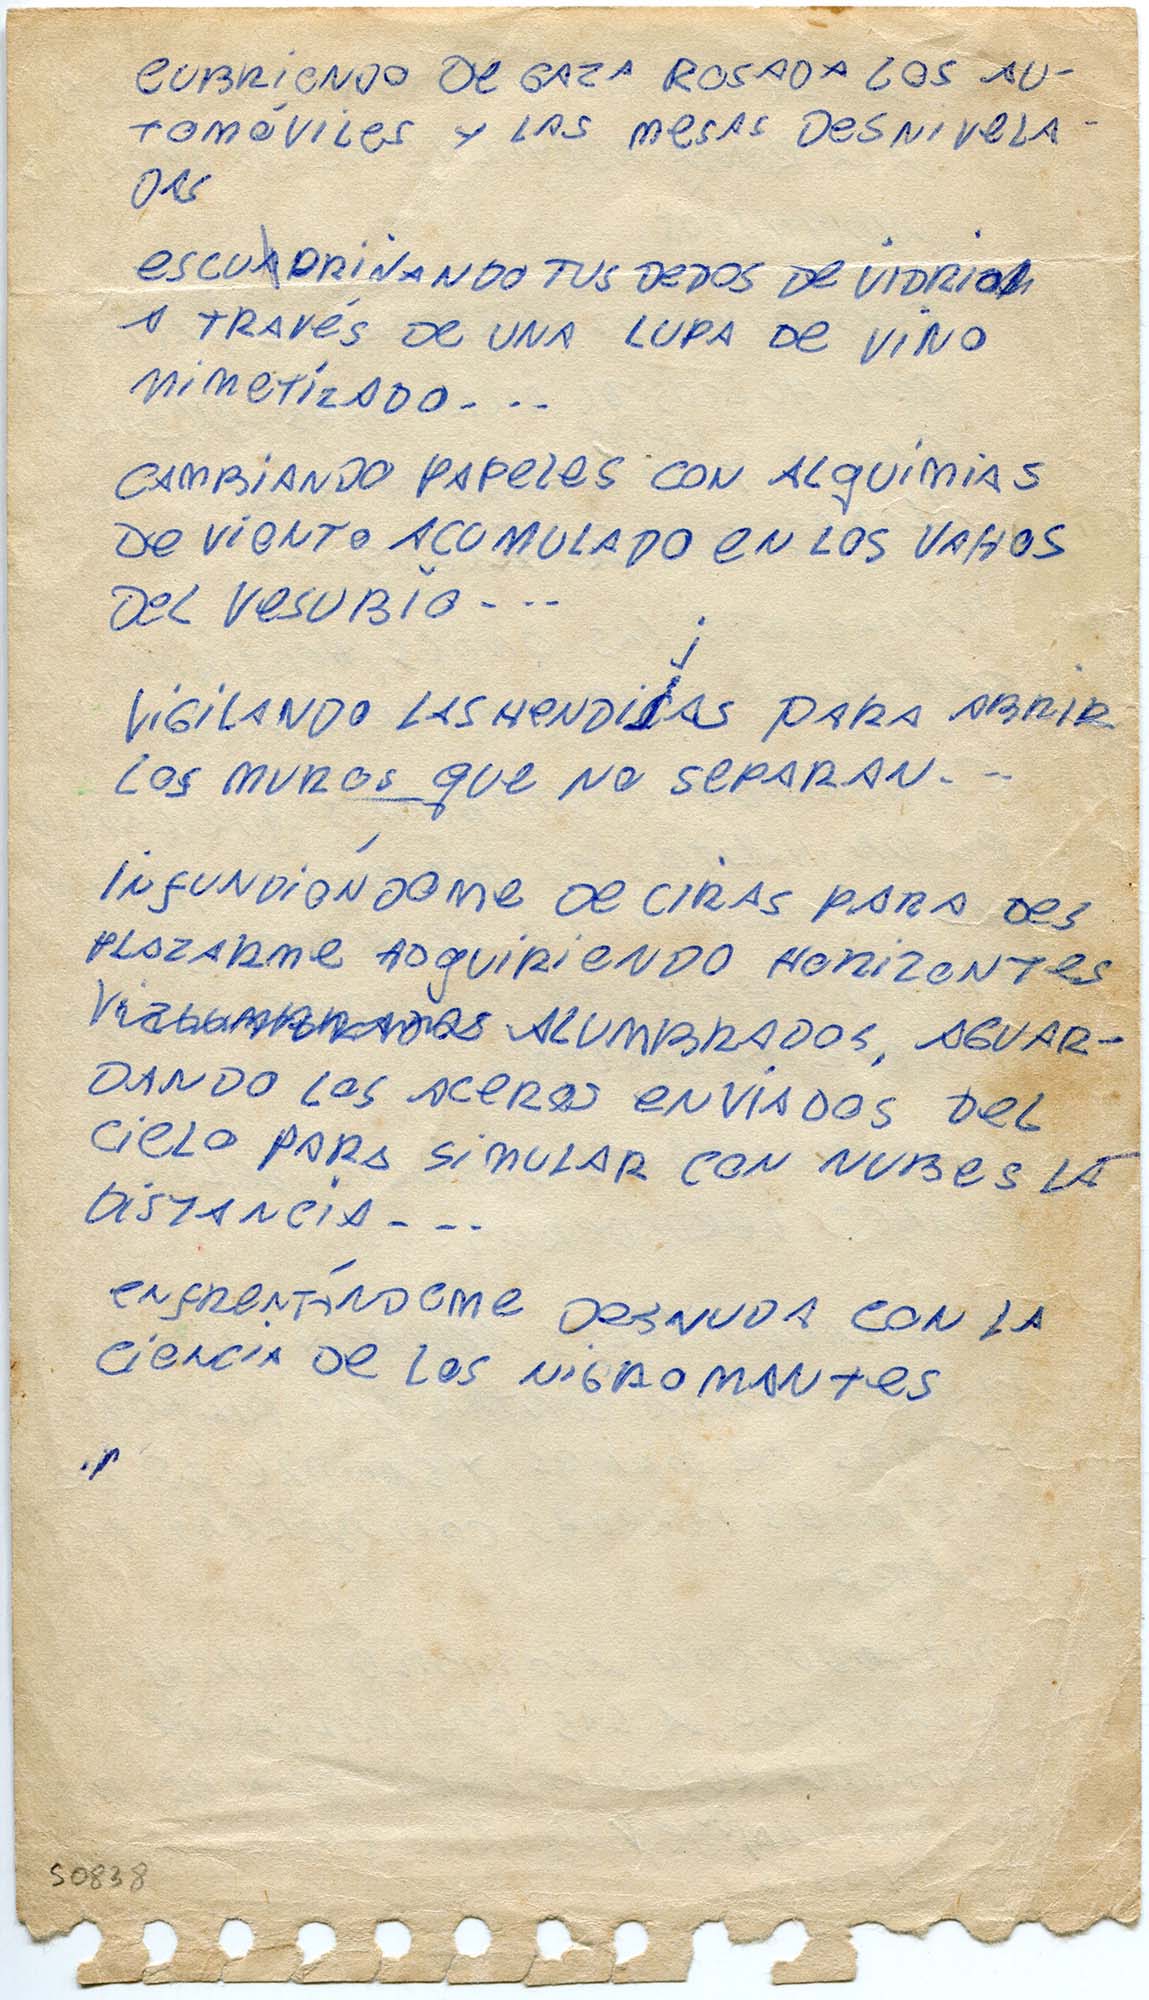 CUBRIENDO DE GAZA ROSADA LOS AU-
TOMÓVILES Y LAS MESAS DESNIVELA-
DAS
ESCUADRIÑANDO TUS DEDOS DE VIDRIO
A TRAVÉS DE UNA LUPA DE VINO
MIMETIZADO---
CAMBIANDO PAPELES CON ALQUIMIAS
DE VIENTO ACUMULADO EN LOS VAHOS
DEL VESUBIO---
VIGILANDO LAS HENDIJAS PARA ABRIR
LOS MUROS QUE NO SEPARAN---
INFUNDIÉNDOME DE CIRAS PARA DES
PLAZARME ADQUIRIENDO HORIZONTES
VIZLUMBRADOS ALUMBRADOS, AGUAR-
DANDO LOS ACEROS ENVIADOS DEL
CIELO PARA SIMULAR CON NUBES LA
DISTANCIA---
ENFRENTÁNDOME DESNUDA CON LA
CIENCIA DE LOS NIGROMANTES
S0838